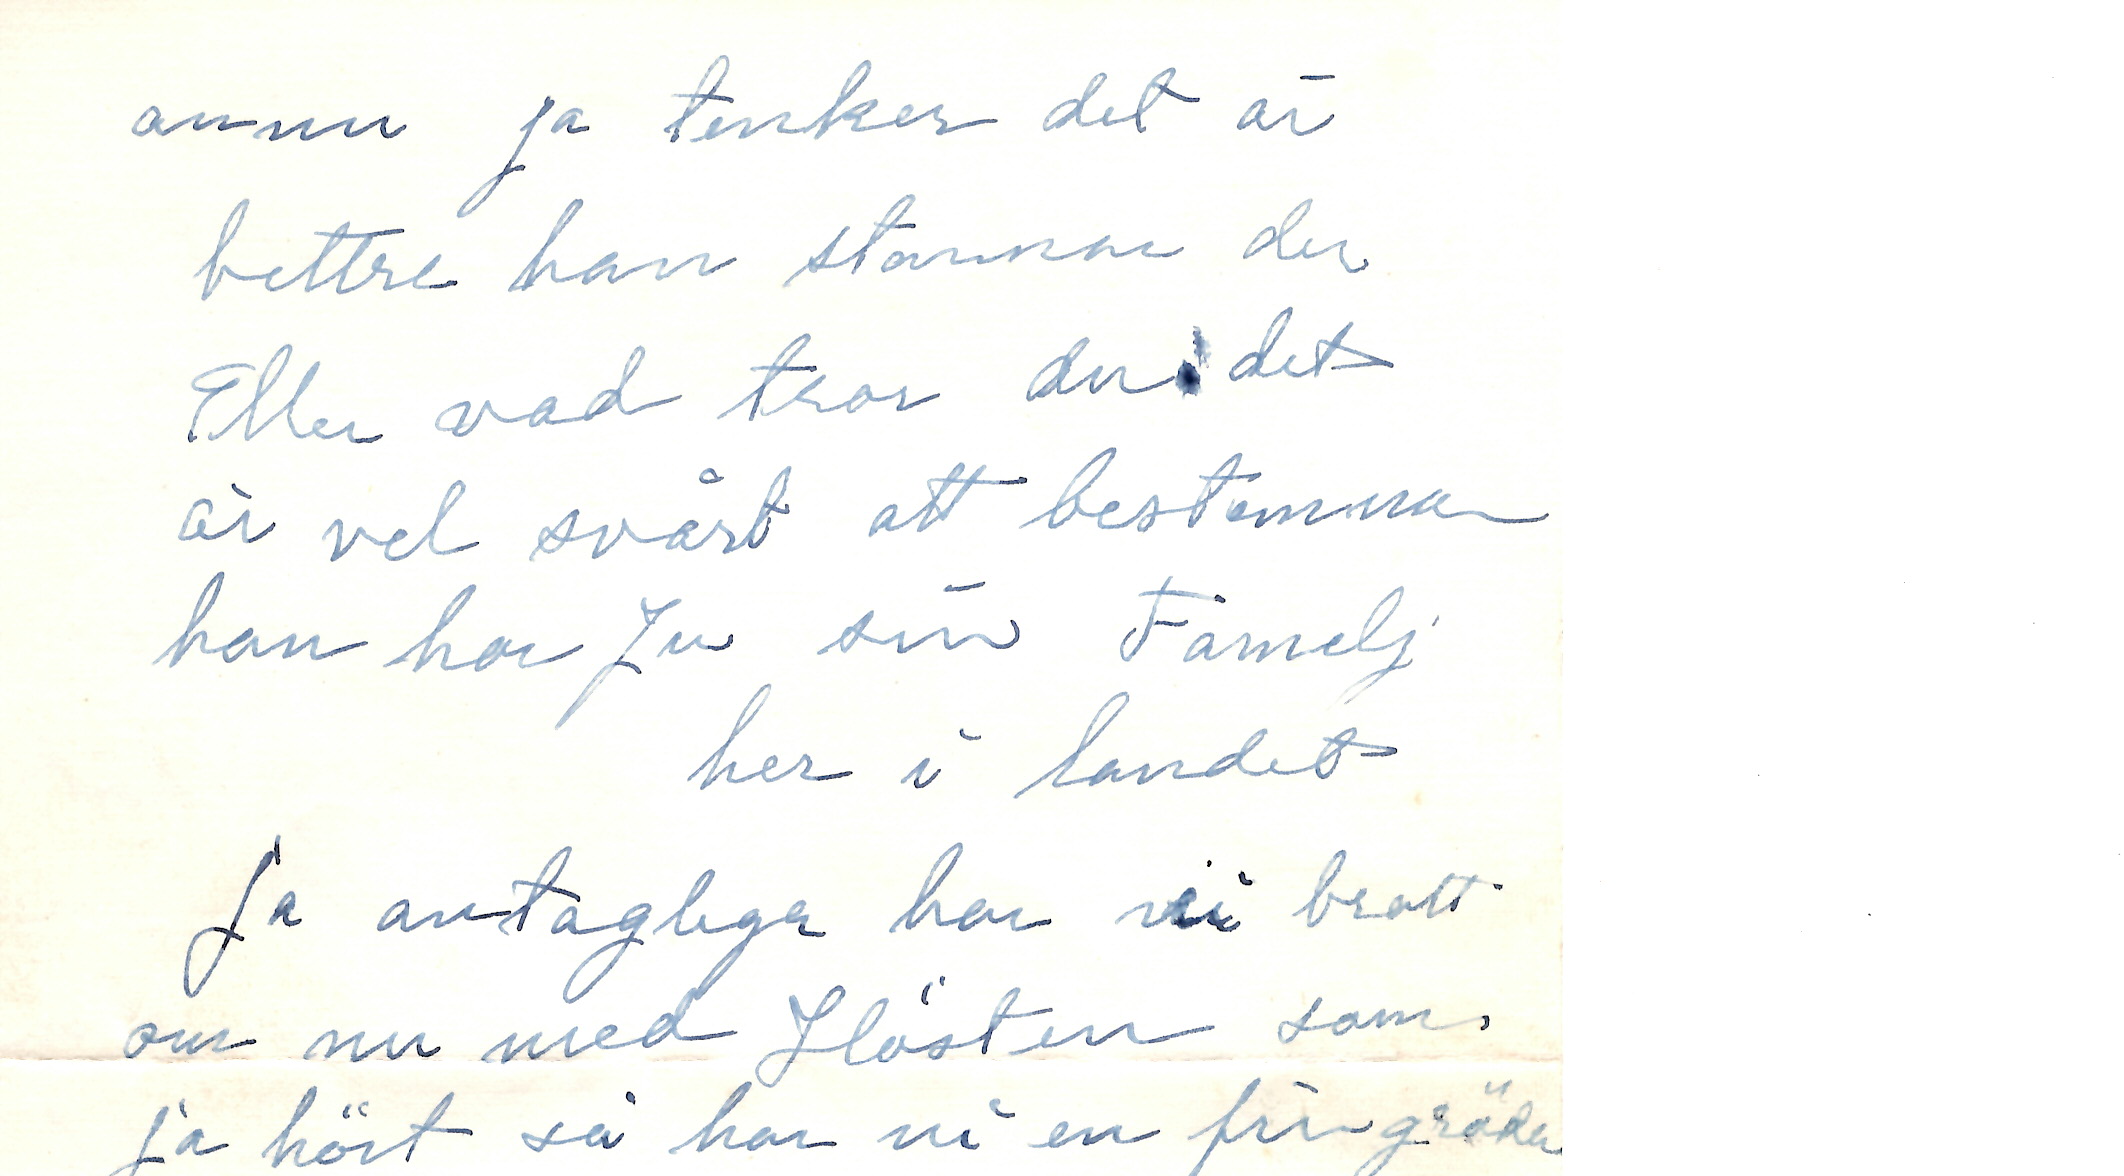 annu ja tenker det är
bettre han stannar der
Eller vad tror du det
är vel svårt att bestemma
han har Ju sin Famelj
her i landet
Ja antagliga har ni brott
om nu med Hösten som
ja hört så har ni en fin gröda